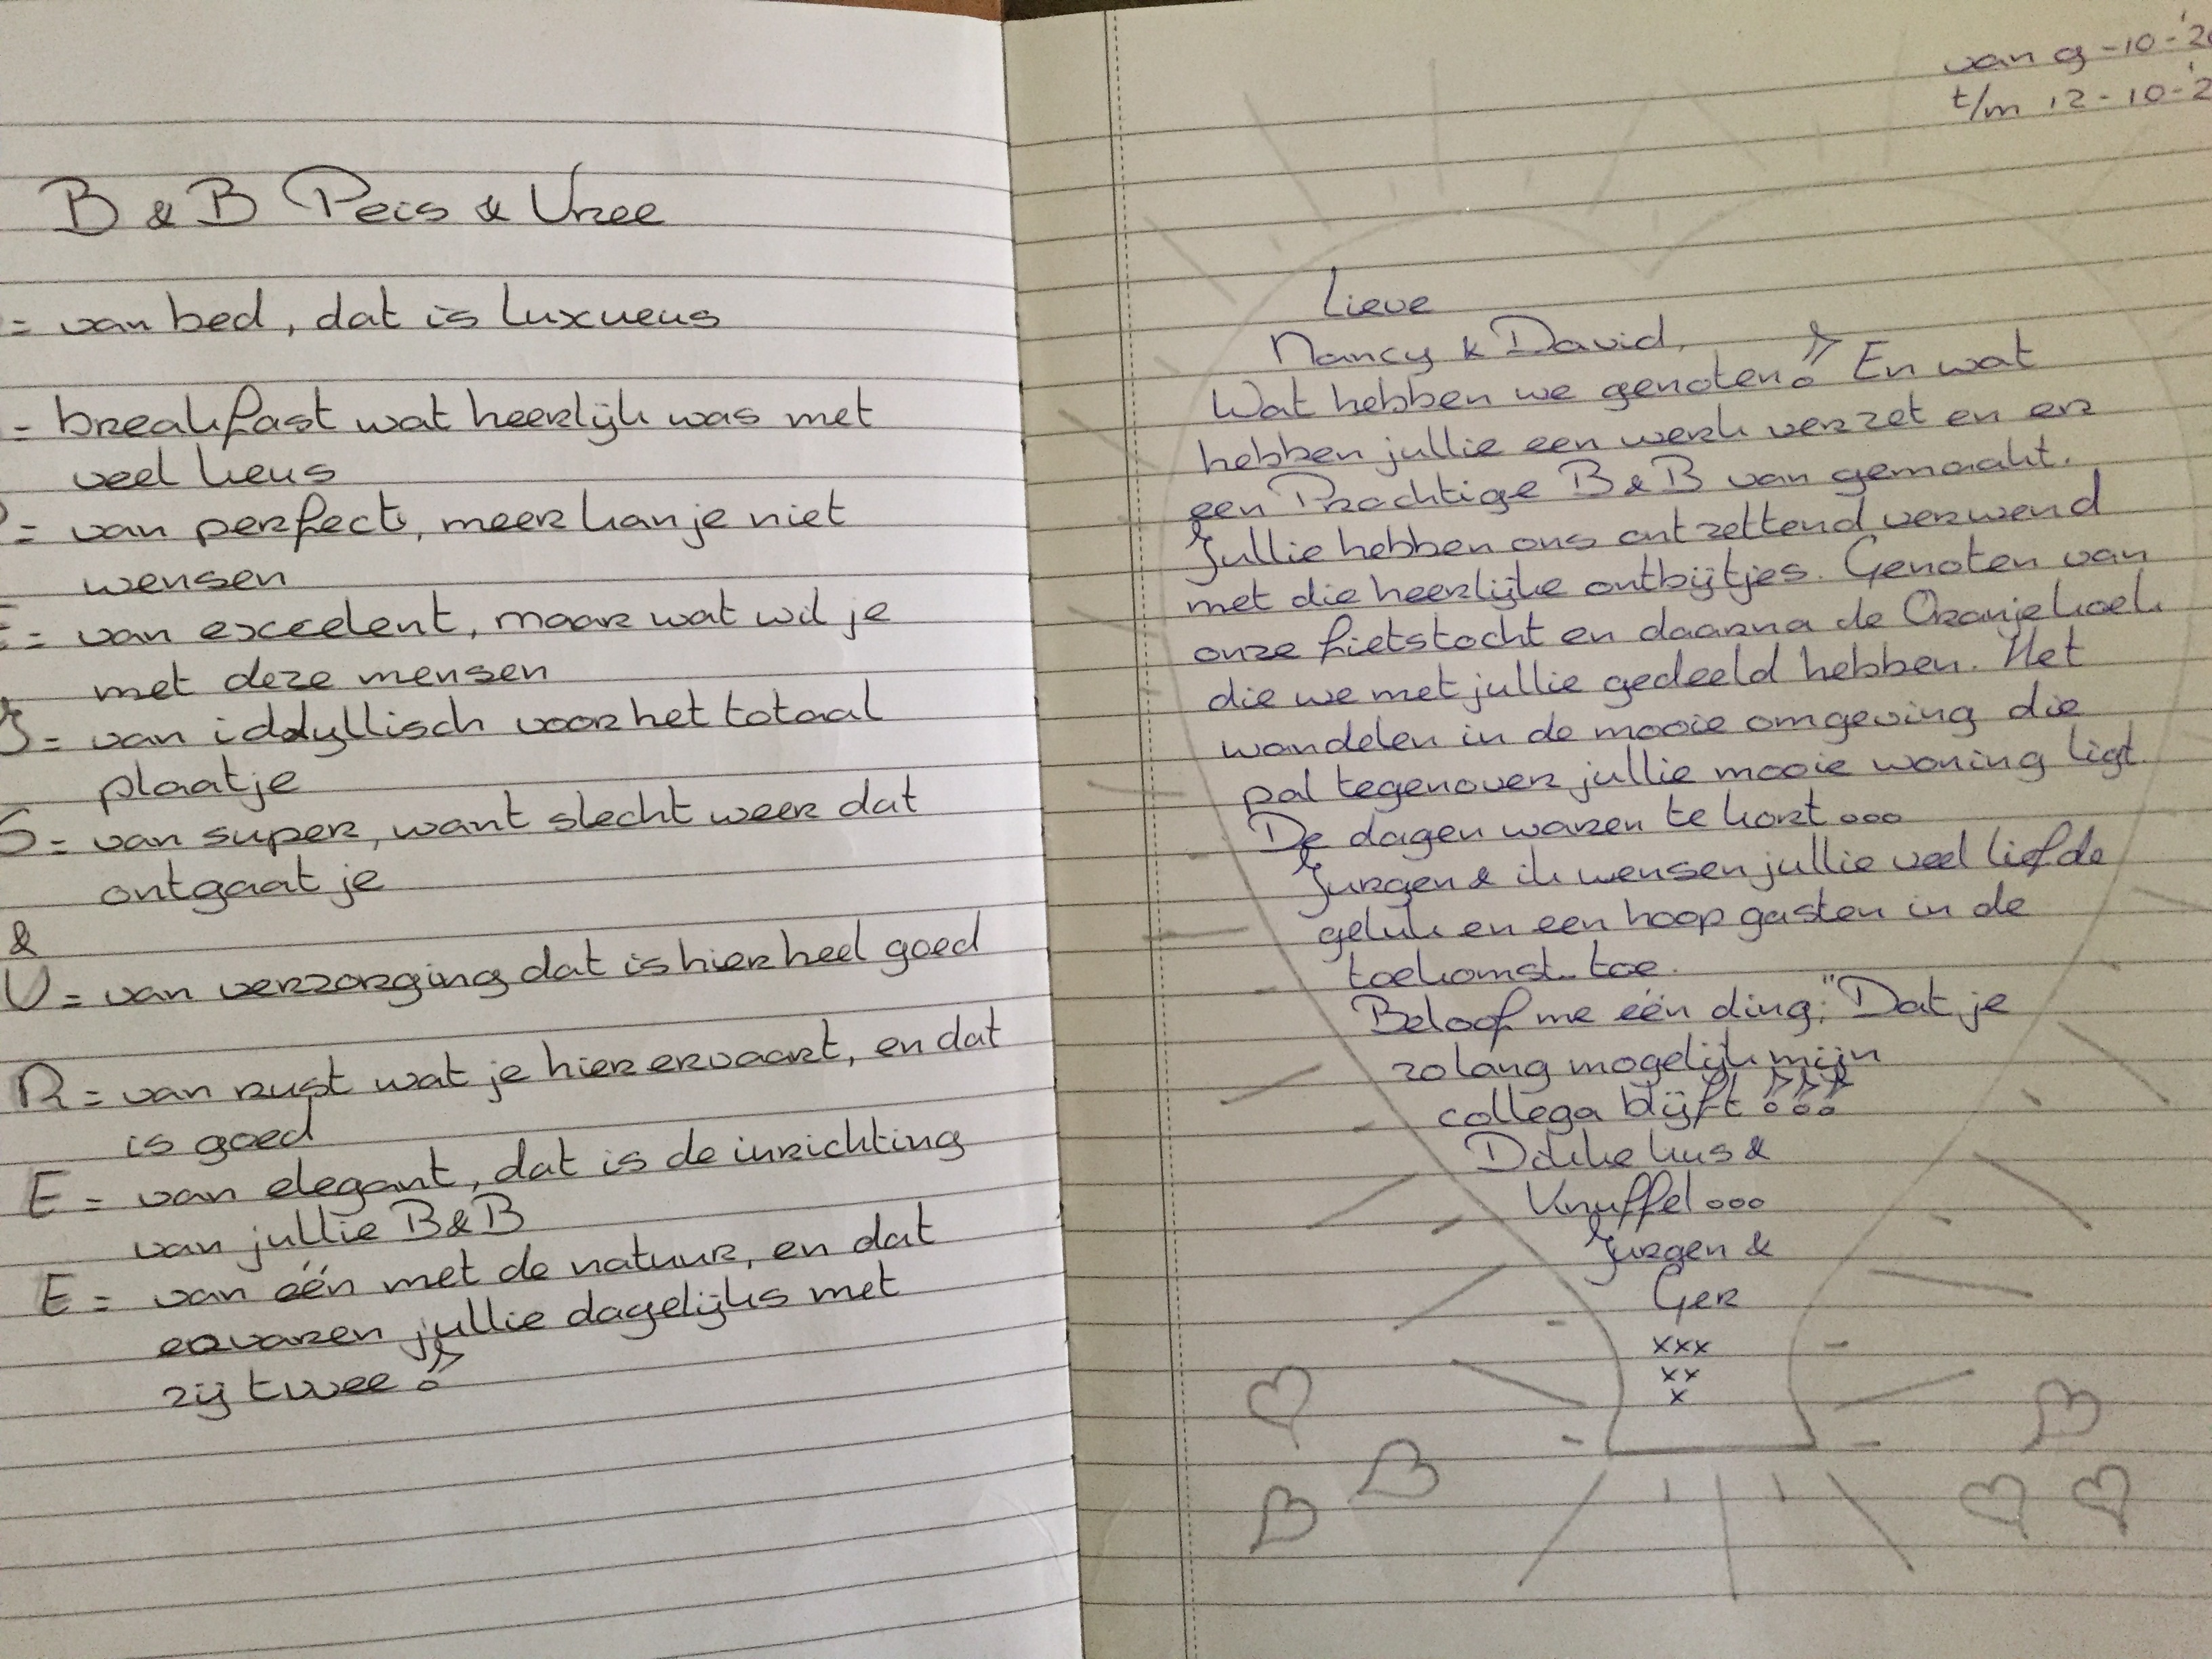 B & B Peis & Vree
= van bed, dat is luxueus
= breakfast wat heerlijk was met
veel keus
P = van perfect, meer kan je niet
wensen
E = van excelent, maar wat wil je
met deze mensen
IJ = van iddyllisch voor het totaal
plaatje
S = van super, want slecht weer dat
ontgaat je
&
V = van verzorging dat is hier heel goed
R = van rust wat je hier ervaart, en dat
is goed
E = van elegant, dat is de inrichting
van jullie B&B
E = van één met de natuur, en dat
ervaren jullie dagelijks met
zij twee!
van 9-10-'2
t/m 12-10-'2
Lieve
Nancy & David,
Wat hebben we genoten! En wat
hebben jullie een werk verzet en er
een Prachtige B&B van gemaakt.
Jullie hebben ons ontzettend verwend
met die heerlijke ontbijtjes. Genoten van
onze fietstocht en daarna de Oranjekoek
die we met jullie gedeeld hebben. Het
wandelen in de mooie omgeving die
pal tegenover jullie mooie woning ligt.
De dagen waren te kort...
Jurgen & ik wensen jullie veel liefde
geluk en een hoop gasten in de
toekomst toe.
Beloof me één ding; "Dat je
zolang mogelijk mijn
collega blijft!!!
Dikke kus &
Knuffel...
Jurgen &
Ger
xxx
xx
x